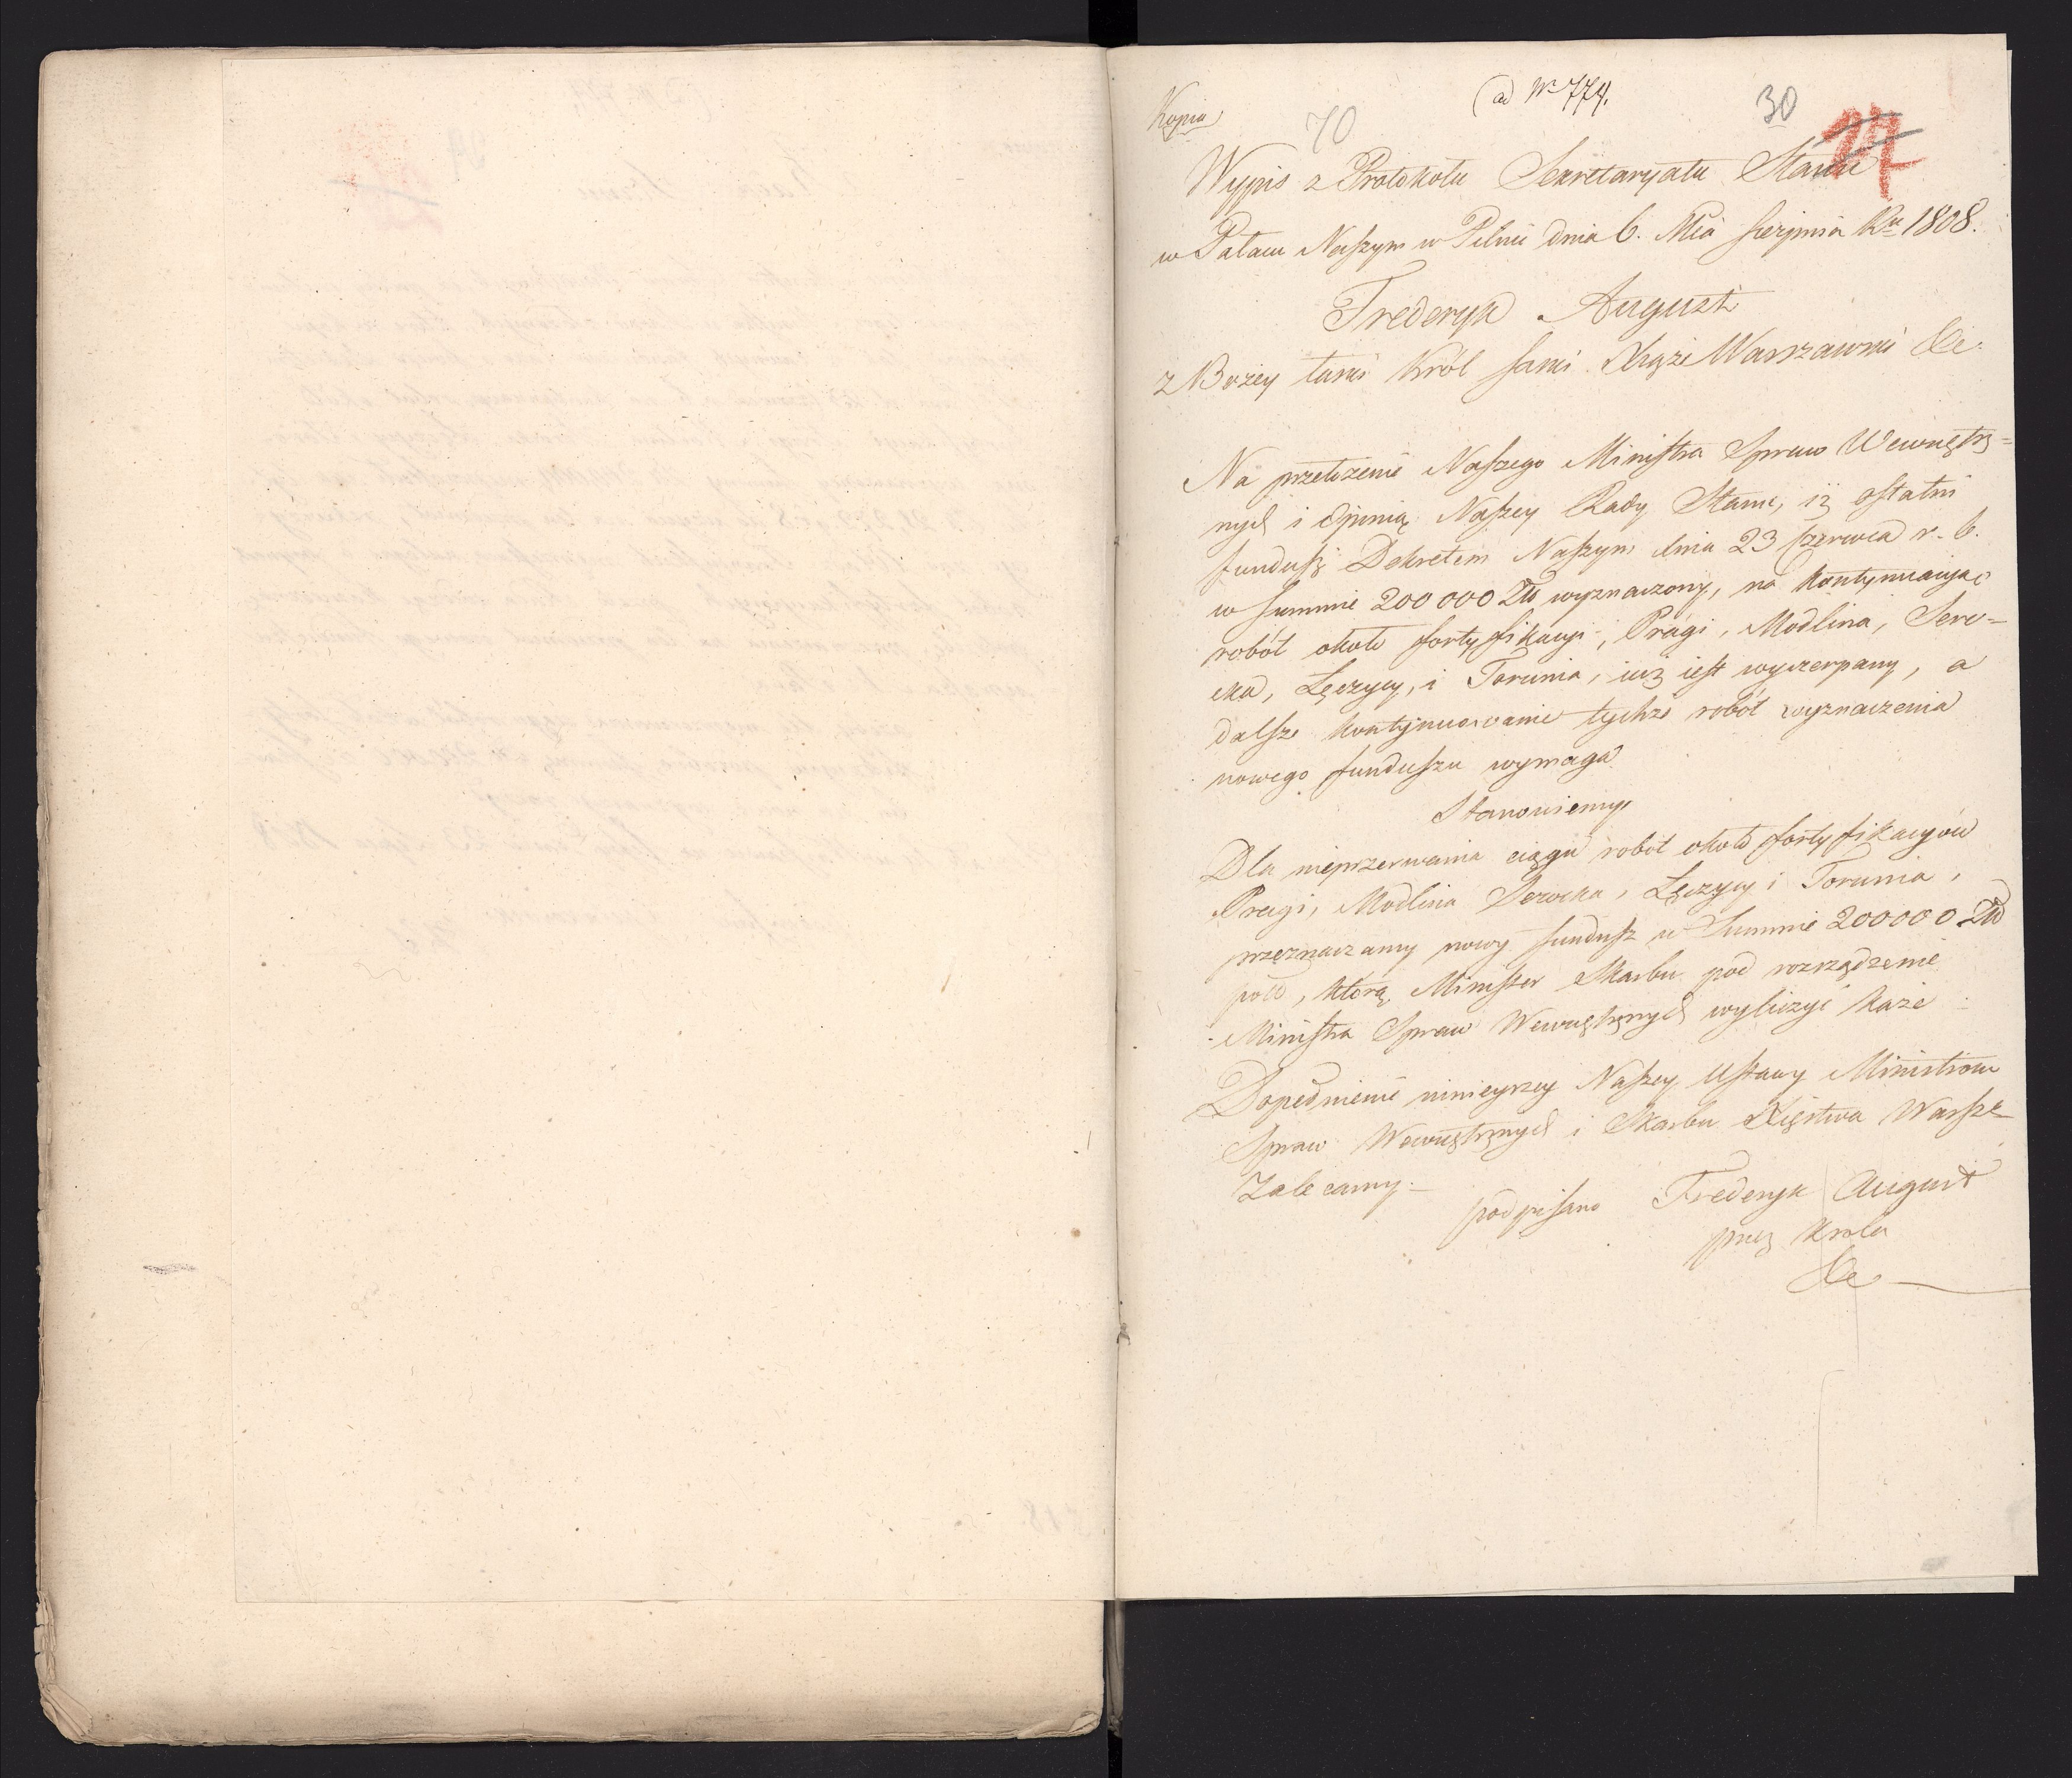 Kopia
(ad Nr 774.
70
30
Wypis z Protokołu Sekretaryatu Stanu
w Pałacu Naszym w Pilnic dnia 6. Mca Sierpnia Ru 1808.
Frederyk August
z Bożey Łaski Król Saski Xiąże Warszawski &c.
Na przełożenie Naszego Ministra Spraw Wewnętrz=
nych i Opinią Naszey Rady Stanu, iż ostatni
fundusz Dekretem Naszym dnia 23 Czerwca r. b.
w Summie 200000 Zło wyznaczony, na kontynuacyją
robót około fortyfikacyi, Pragi, Modlina, Sero=
cka, Łęczycy, i Torunia, iuż iest wyczerpany, a
dalsze kontynuowanie tychże robót wyznaczenia
nowego funduszu wymaga
Stanowiemy
Dla nieprzerwania ciągu robót około fortyfikacyów
Pragi, Modlina Serocka, Łęczycy i Torunia,
przeznaczamy nowy fundusz w Summie 200000 Zło
pols, którą Minister Skarbu pod rozrządzenie
Ministra Spraw Wewnętrznych wyliczyć każe
Dopełnienie ninieyszey Naszey Ustawy Ministrom
Spraw Wewnętrznych i Skarbu Xięstwa Warsze
Zalecamy.
podpisano Frederyk August
przez Krola
&c